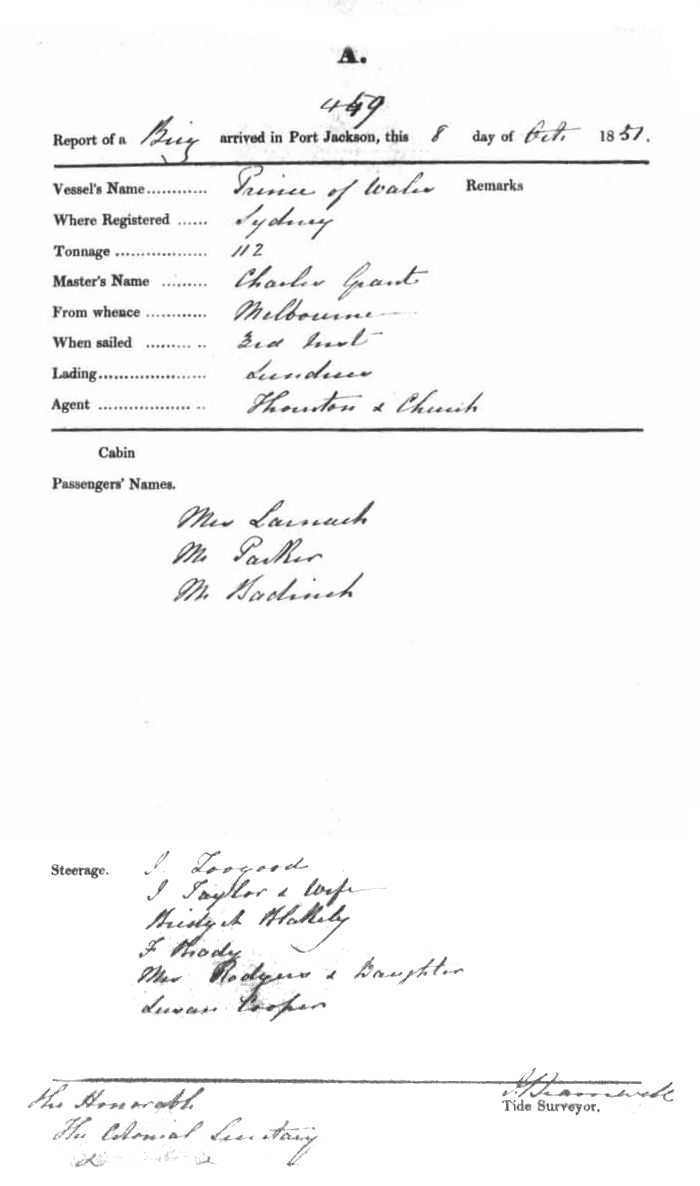 A.
449
Report of a Brig arrived in Port Jackson, this 8 day of Oct. 1851.
Vessel's Name............ Prince of Wales Remarks
Where Registered ...... Sydney
Tonnage .................. 112
Master's Name ......... Charles Grant
From whence ............ Melbourne
When sailed ......... .. 3rd Inst
Lading..................... Sundries
Agent .................. .. Thornton & Church
Cabin
Passengers' Names.
Mrs Larnach
Mr Parker
Mr Badinch
Steerage. J Toogood
J Taylor & Wife
Bridget Blakely
F Brady
Mrs Rodgers & Daughter
Susan Cooper
Tide Surveyor.
The Honorable
The Colonial Secretary
&